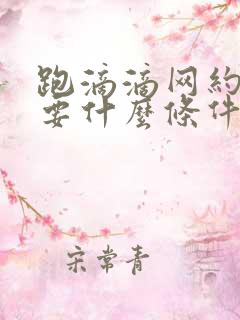 跑滴滴网約
要什麼條件
宋常青